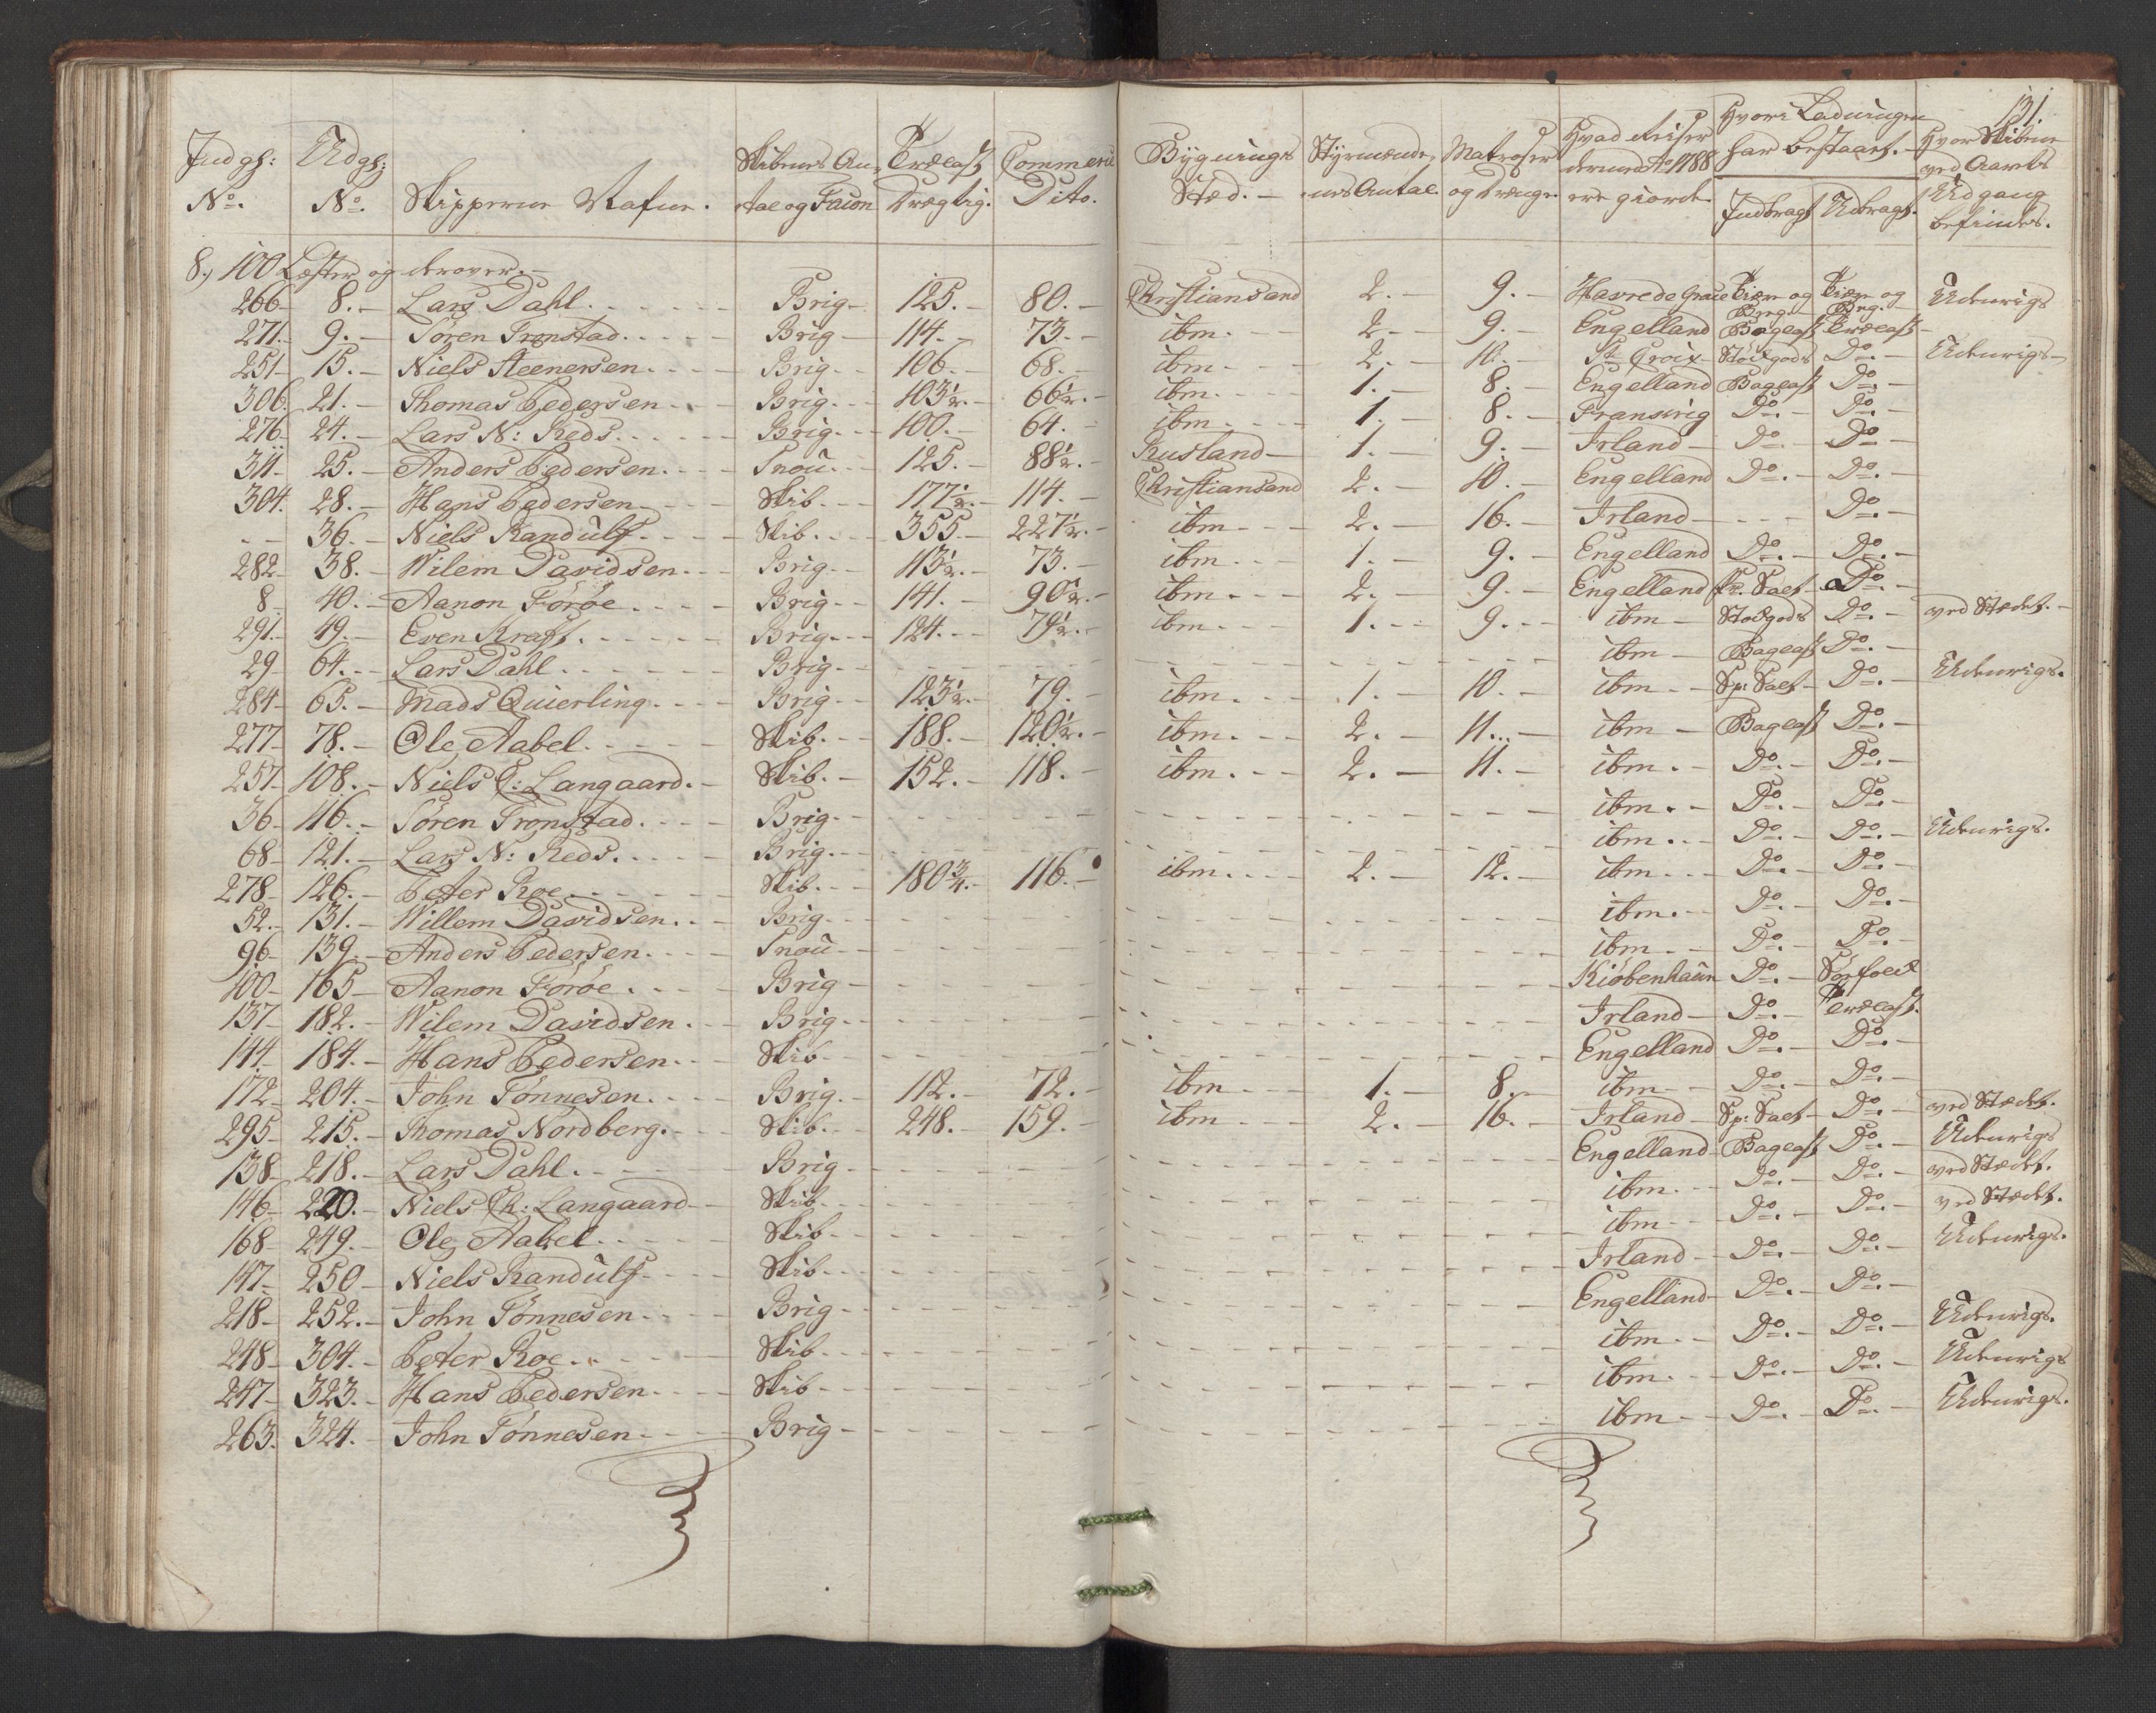 131.
Indgs: No. | Udgs: No. | Skippernes Nafne. | Skibenes An-tal og Facon | Trælast Drægtig. | Commerce Dito. | Bygnings Stæd. | Styrmænde-nes Antal | Matroser og Drenge | Hvad Reiser dermed Ao 1788 ere giorde | Hvori Ladningen har bestaaet. Indbragt | Udbragt. | Hvor Skibene ved Aarets Udgang befindes.
8.) 100 Læster og derover.
266 | 8. | Lars Dahl | Brig | 125. | 80. | Christiansand | 2. | 9. | Havre de Grace | Tiær og Beeg. | Tiær og Beg. | Udenrigs
271. | 9. | Sören Tronstad | Brig | 114. | 73. | ibm. | 2. | 9. | Engelland | Baglast | Trælast
251 | 15. | Niels Steenersen | Brig | 106. | 68. | ibm | 2. | 10. | St Croix | Stÿkgods | Do. | Udenrigs
306. | 21. | Thomas Pedersen | Brig | 103½. | 66½. | ibm | 1. | 8. | Engelland | Baglast | Do.
276 | 24. | Lars N: Reds | Brig | 100. | 64. | ibm | 1. | 8. | Fransrig | Do. | Do.
311 | 25. | Anders Pedersen | Snou | 125. | 88½. | Rusland | 1. | 9. | Irland | Do. | Do
304. | 28. | Hans Pedersen | Skib | 177½. | 114. | Christiansand | 2. | 10. | Engelland | Do. | Do.
36. | Niels Randulf | Skib | 355. | 227½. | ibm | 2. | 16. | Irland | Do.
282 | 38. | Wilem Davidsen | Brig | 113½. | 73. | ibm | 1. | 9. | Engelland | Do. | Do.
8 | 40. | Aanon Föröe | Brig | 141. | 90½. | ibm | 2. | 9. | Engelland | Salt | Do.
291. | 49. | Even Kraft | Brig | 124. | 79½. | ibm | 1. | 9. | ibm | Stÿkgods | Do. | ved Stædet.
29 | 64. | Lars Dahl | Brig | ibm | Baglast | Do.
284 | 65. | Mads Quierling | Brig | 123½. | 79. | ibm | 1. | 10. | ibm | Sp: Salt | Do. | Udenrigs.
277 | 78. | Ole Aabel | Skib. | 188. | 120½. | ibm | 2. | 11. | ibm | Baglast | Do.
257 | 108. | Niels C: Langaard. | Skib. | 152. | 118. | ibm. | 2. | 11. | ibm. | Do. | Do.
36 | 116. | Sören Tronstad. | Brig | ibm. | Do. | Do.
68 | 121. | Lars N: Reds. | Brig. | ibm. | Do. | Do. | Udenrigs.
278 | 126. | Peter Roe | Skib. | 180¾. | 116. | ibm | 2. | 12. | ibm | Do. | Do.
52. | 131. | Willem Davidsen. | Brig | ibm. | Do. | Do.
96 | 139. | Anders Pedersen. | Snou | ibm | Do. | Do.
100 | 165 | Aanon Föröe. | Brig | Kiöbenhaun | Do. |
137 | 182. | Wilem Davidsen. | Brig | Irland | Do. | Trælast.
144 | 184. | Hans Pedersen | Skib | Engelland | Do. | Do.
172 | 204. | John Tönnesen. | Brig. | 112. | 72. | ibm | 1. | 8. | ibm | Do. | Do.
295 | 215. | Thomas Nordberg. | Skib. | 248. | 159. | ibm | 2. | 16. | Irland | Sp: Salt | Do. | ved Stædet.
138 | 218. | Lars Dahl. | Brig | Engelland | Baglast | Do. | Udenrigs
146 | 220. | Niels Ch: Langaard | Skib | ibm. | Do. | Do. | ved Stædet.
168 | 249. | Ole Aabel | Skib | ibm | Do. | Do. | ved Stædet.
147 | 250 | Niels Randulf | Skib | Irland | Do. | Do. | Udenrigs.
218 | 252. | John Tönnesen | Brig | Engelland | Do. | Do.
248 | 304. | Peter Roe. | Skib | ibm | Do. | Do. | Udenrigs.
247 | 323. | Hans Pedersen | Skib | ibm. | Do. | Do. | Udenrigs
263. | 324. | John Tönnesen | Brig | ibm | Do. | Do. | Udenrigs.